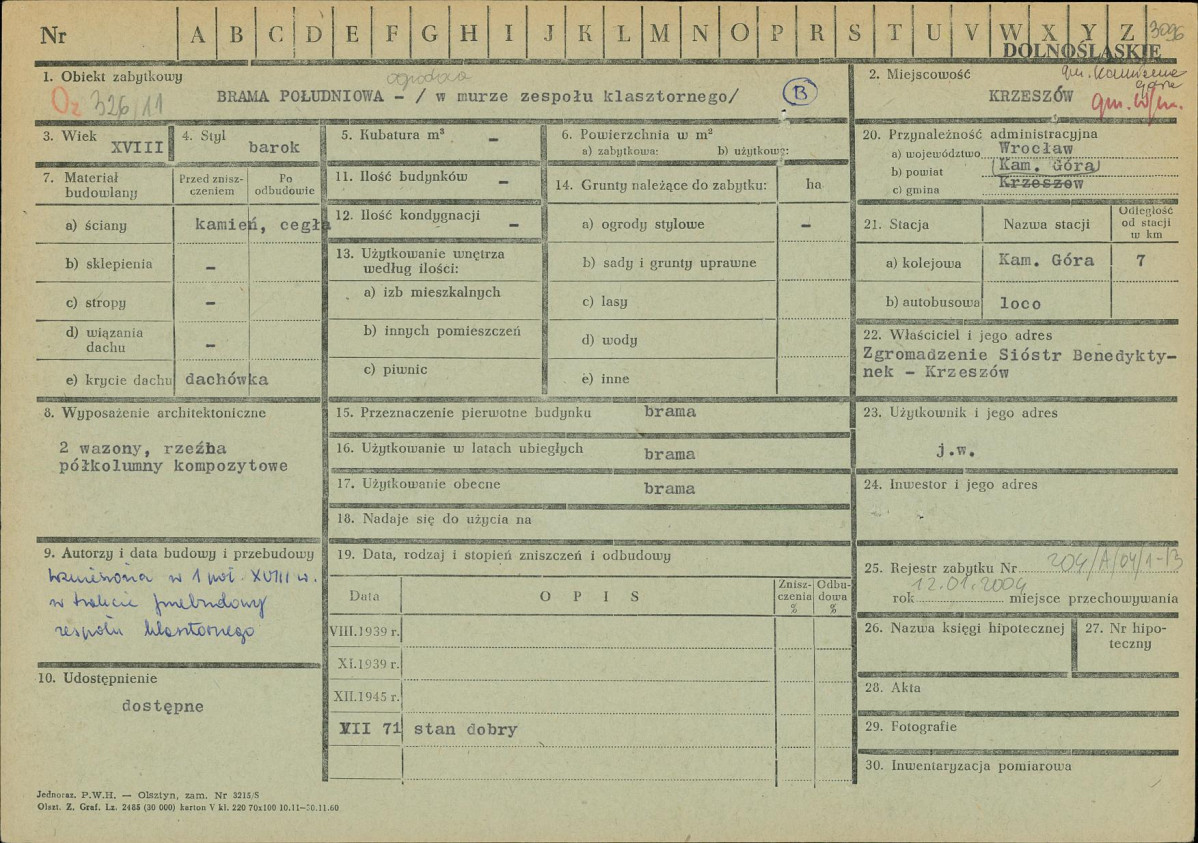 Nr A B C D E F G H I J K L M N O P R S T U V W X Y Z 3096
DOLNOŚLĄSKIE
1. Obiekt zabytkowy
ogrodowa
Oz 326/11
BRAMA POŁUDNIOWA - / w murze zespołu klasztornego/
B
2. Miejscowość
gm. Kamienna Góra
KRZESZÓW
gm. w/m.
3. Wiek
XVIII
4. Styl
barok
5. Kubatura m³ -
6. Powierzchnia w m²
a) zabytkowa: b) użytkow?:
7. Materiał budowlany
Przed znisz-
czeniem
Po
odbudowie
a) ściany kamień, cegła
b) sklepienia -
c) stropy -
d) wiązania
dachu -
e) krycie dachu dachówka
8. Wyposażenie architektoniczne
2 wazony, rzeźba
półkolumny kompozytowe
9. Autorzy i data budowy i przebudowy
wzniesiona w 1 poł. XVIII w.
w trakcie przebudowy
zespołu klasztornego
10. Udostępnienie
dostępne
11. Ilość budynków -
12. Ilość kondygnacji -
13. Użytkowanie wnętrza
według ilości:
a) izb mieszkalnych
b) innych pomieszczeń
c) piwnic
14. Grunty należące do zabytku: ha
a) ogrody stylowe -
b) sady i grunty uprawne
c) lasy
d) wody
e) inne
15. Przeznaczenie pierwotne budynku brama
16. Użytkowanie w latach ubiegłych brama
17. Użytkowanie obecne brama
18. Nadaje się do użycia na
19. Data, rodzaj i stopień zniszczeń i odbudowy
Data
O P I S
Znisz-
czenia
%
Odbu-
dowa
%
VIII.1939 r.
XI.1939 r.
XII.1945 r.
VII 71 stan dobry
20. Przynależność administracyjna
a) województwo Wrocław
b) powiat (Kam. Góra)
c) gmina Krzeszów
21. Stacja
Nazwa stacji
Odległość
od stacji
w km
a) kolejowa Kam. Góra 7
b) autobusowa loco
22. Właściciel i jego adres
Zgromadzenie Sióstr Benedykty-
nek - Krzeszów
23. Użytkownik i jego adres
j.w.
24. Inwestor i jego adres
25. Rejestr zabytku Nr 204/A/04/1-13
rok 12.01.2004 miejsce przechowywania
26. Nazwa księgi hipotecznej
27. Nr hipo-
teczny
28. Akta
29. Fotografie
30. Inwentaryzacja pomiarowa
Jednoraz. P.W.H. — Olsztyn, zam. Nr 3215/S
Olszt. Z. Graf. Lz. 2485 (30 000) karton V kl. 220 70x100 10.11—30.11.60